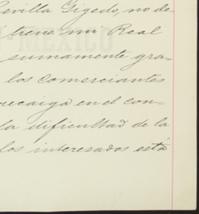 Revilla Gigedo, no de
tiene mi Real
sumamente gra-
los comerciantes
recaiga en el con-
la dificultad de la
los interesados está